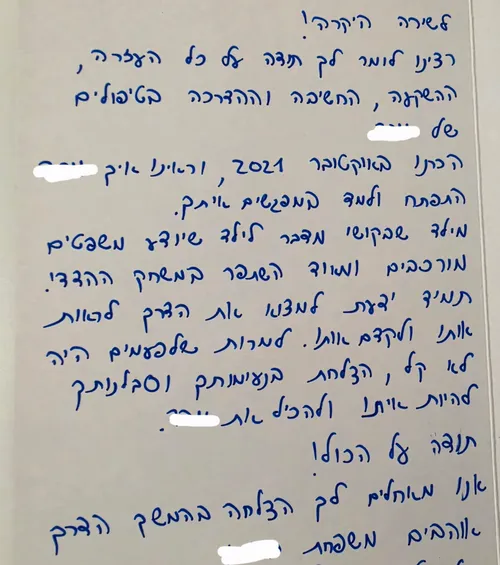 לשירה היקרה!
רצינו לומר לך תודה על כל העזרה,
ההשקעה, החשיבה וההדרכה בטיפולים
של
הכרנו באוקטובר 2021, וראינו איך
התפתח ולמד במפגשים איתך.
מילד שבקושי מדבר לילד שיודע משפטים
מורכבים ומאוד השתפר במשחק ההדדי.
תמיד ידעת למצוא את הדרך לראות
אותו ולקדם אותו. למרות שלפעמים היה
לא קל, הצלחת בנעימותך וסבלנותך
להיות איתו ולהכיל את
תודה על הכול!
אנו מאחלים לך הצלחה בהמשך הדרך
אוהבים משפחת